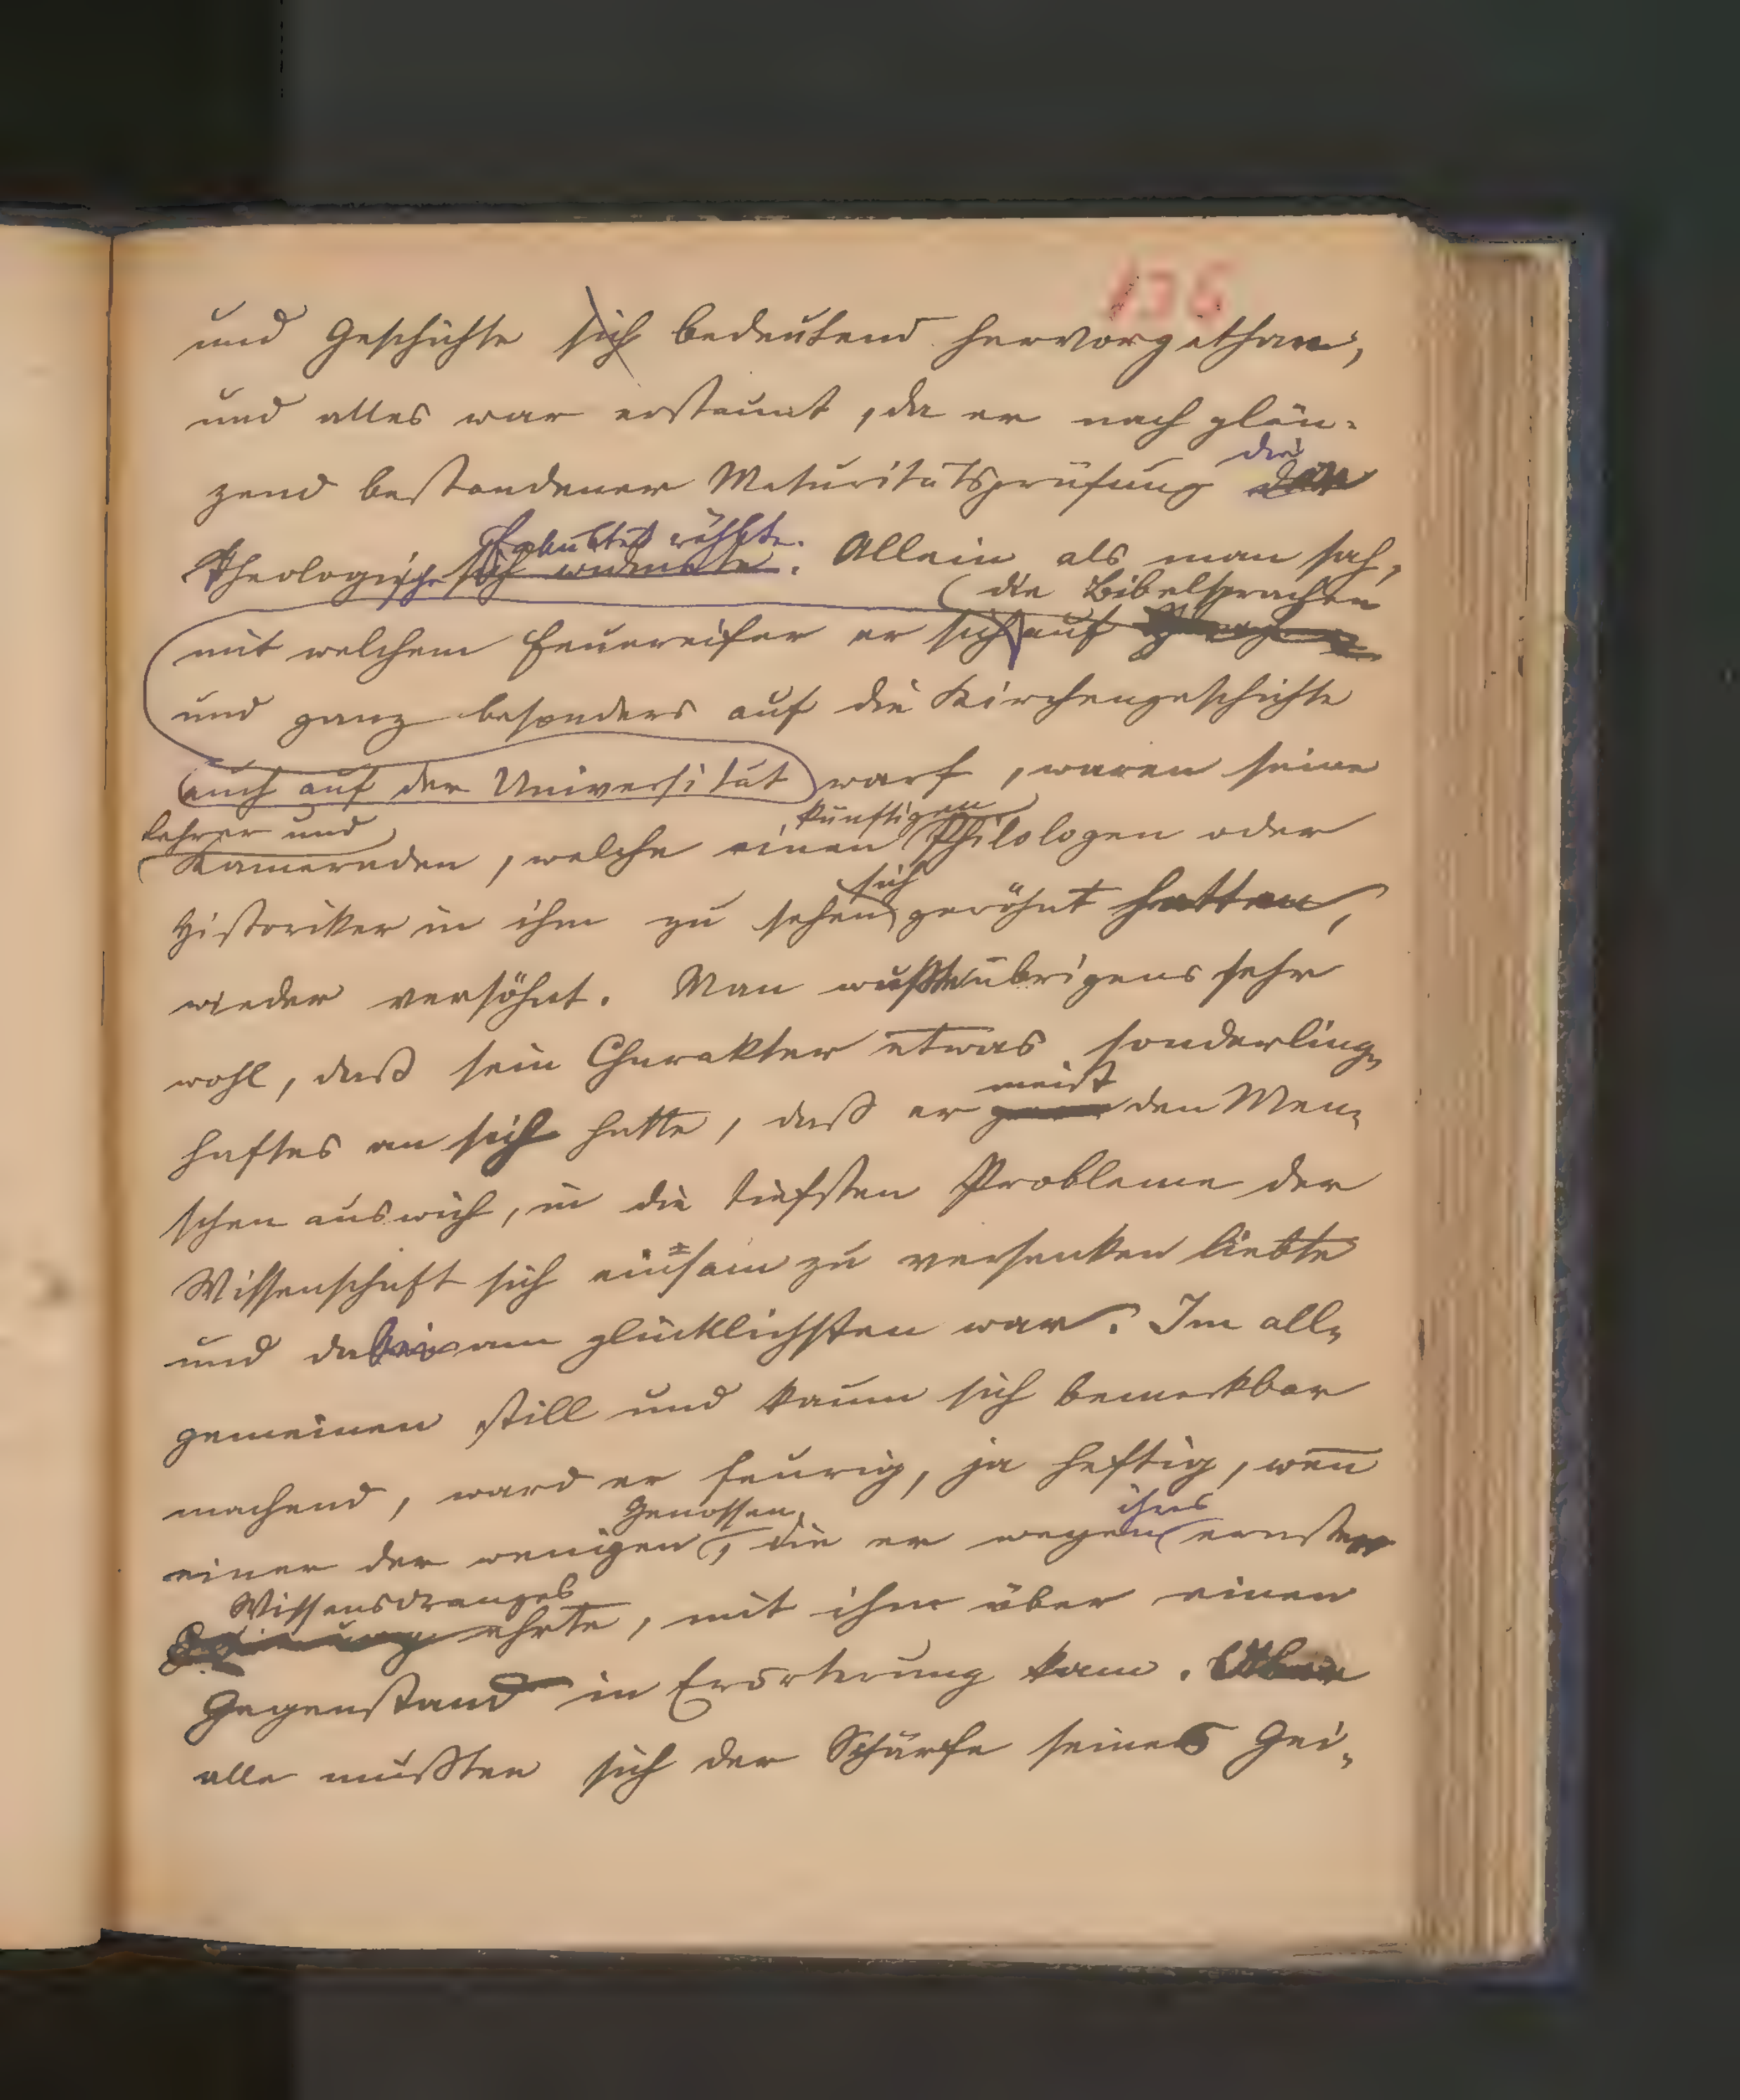 136
und Geschichte sich bedeutend hervorgethan,
und alles war erstaunt, da er nach glän-
die
zend bestandener Maturitätsprüfung der
Fakultät wählte.
Theologische sich widmete. Allein als man sah,
die Bibelsprachen
mit welchem Feuereifer er sich auf
und ganz besonders auf die Kirchengeschichte
auch auf der Universität warf, waren seine
Lehrer und künftigen
Kameraden, welche einen Philologen oder
sich
Historiker in ihm zu sehen gewöhnt hatten,
wieder versöhnt. Man wußte übrigens sehr
wohl, daß sein Charakter etwas sonderling-
meist
haftes an sich hatte, daß er gern den Men-
schen auswich, in die tiefsten Probleme der
Wissenschaft sich einsam zu versenken liebte
und dabei am glücklichsten war. Im all-
gemeinen still und kaum sich bemerkbar
machend, ward er feurig, ja heftig, wen̄
Genossen ihres
einer der wenigen, die er wegen ernsten
Wissensdranges
ehrte, mit ihm über einen
Gegenstand in Erörterung kam. Aber
alle mußten sich der Schärfe seines Gei-